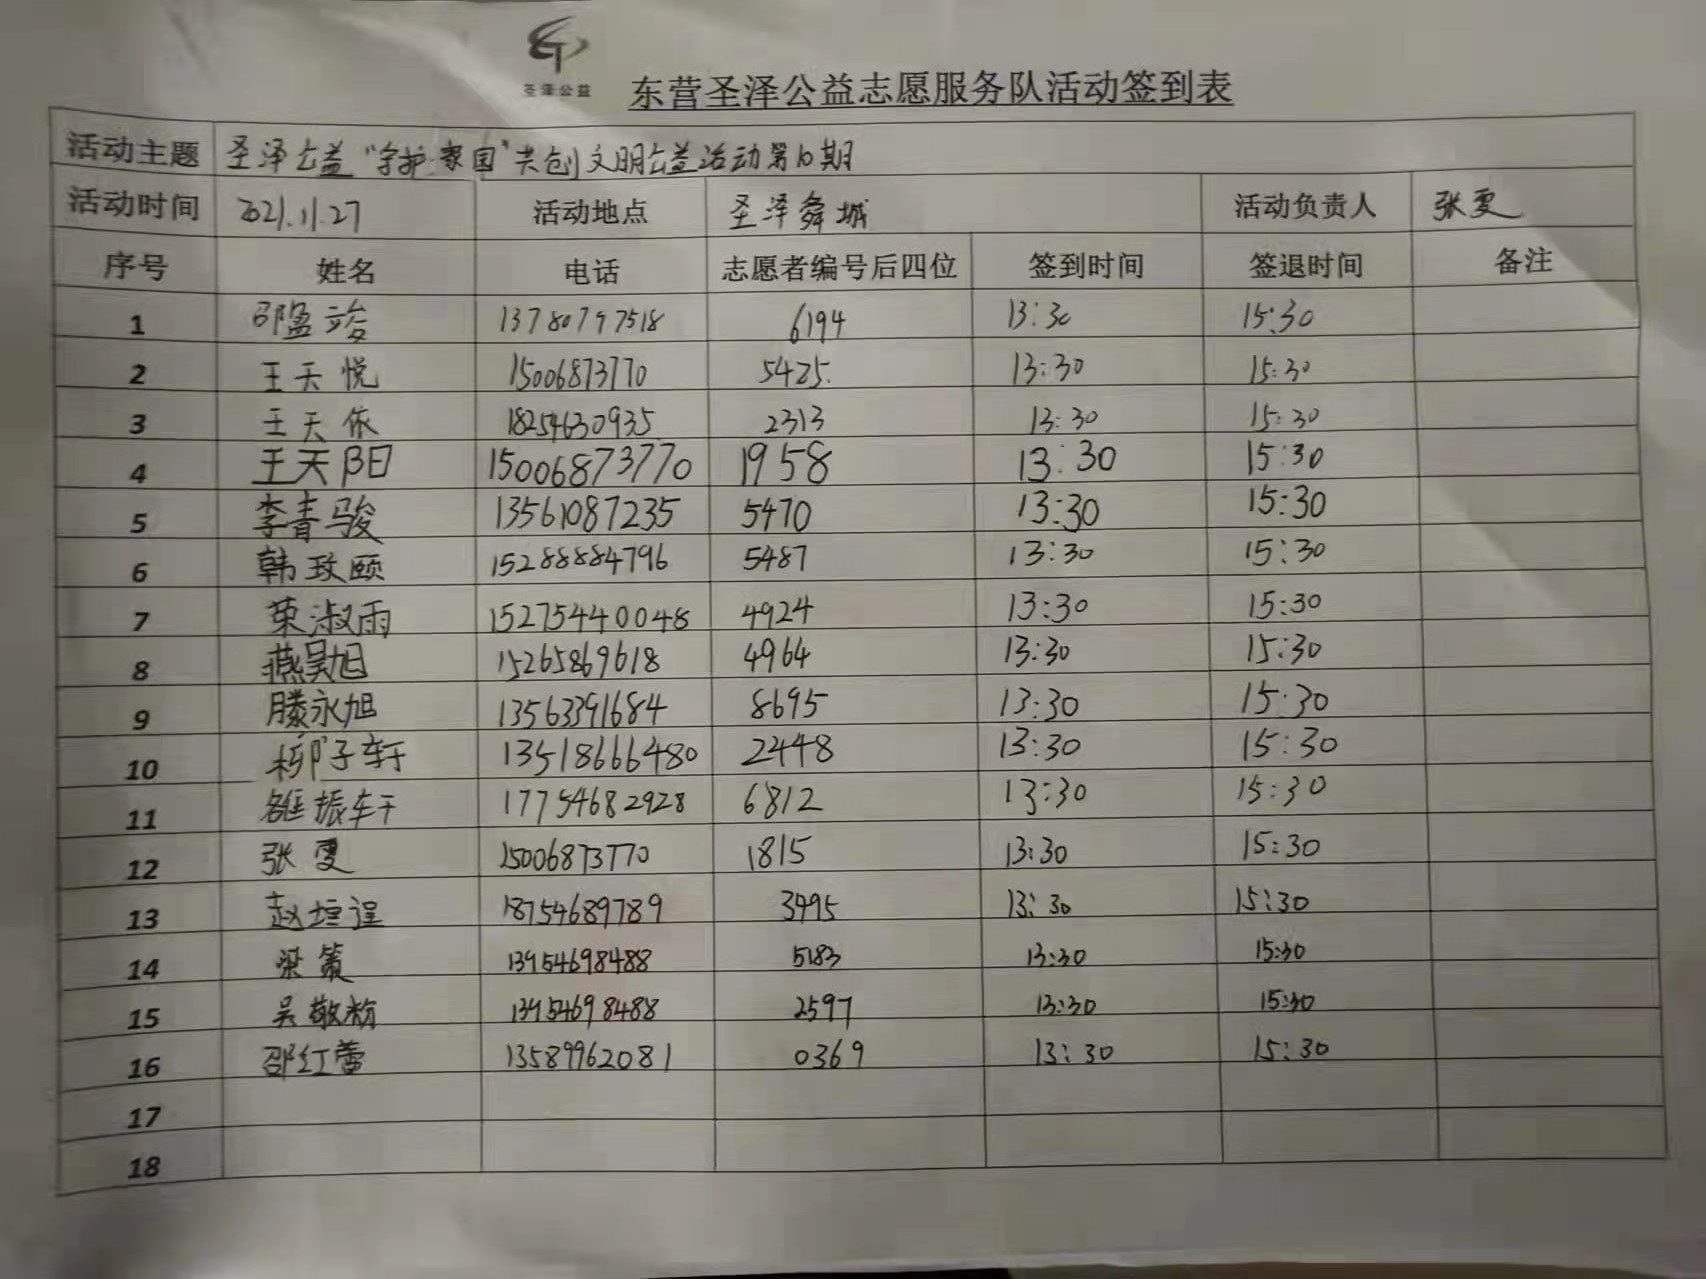 圣泽公益
东营圣泽公益志愿服务队活动签到表
活动主题 圣泽公益“守护·家园”共创文明公益活动第10期
活动时间 2021.11.27 活动地点 圣泽舜城 活动负责人 张雯
序号 姓名 电话 志愿者编号后四位 签到时间 签退时间 备注
1 邵盈竣 13780797518 6194 13:30 15:30
2 王天悦 15006873770 5425 13:30 15:30
3 王天依 18254630935 2313 13:30 15:30
4 王天阳 15006873770 1958 13:30 15:30
5 李青骏 13561087235 5470 13:30 15:30
6 韩玫颐 15288884796 5487 13:30 15:30
7 荣淑雨 15275440048 4924 13:30 15:30
8 燕昊旭 15265869618 4964 13:30 15:30
9 滕永旭 13563391684 8695 13:30 15:30
10 柳子轩 13518666480 2448 13:30 15:30
11 振轩 17754682928 6812 13:30 15:30
12 张雯 15006873770 1815 13:30 15:30
13 赵垣逞 18754689789 3495 13:30 15:30
14 梁策 13954698488 5183 13:30 15:30
15 吴敬粉 13954698488 2597 13:30 15:30
16 邵红蕾 13589962081 0369 13:30 15:30
17
18